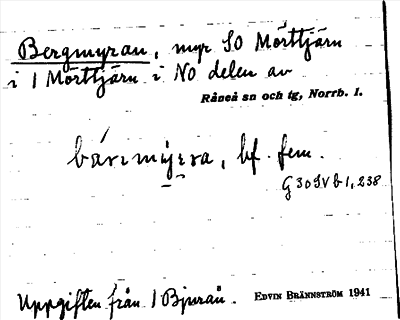 Bergmyran, myr SO Mörttjärn
i 1 Mörttjärn i NO delen av
Råneå sn och tg, Norrb. l.
bf. fem.
G30SVb1, 238
Uppgiften från 1 Bjurån. EDVIN BRÄNNSTRÖM 1941